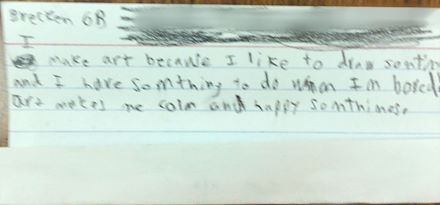 Brecken 6B
I
make art because I like to draw
and I have somthing to do when I'm bored
art makes me calm and happy somthimes.